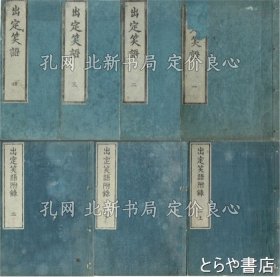 出定笑語 四
出定笑語 三
出定笑語 二
笑語 一
孔网 北新书局 定价良心
出定笑語附録
出定笑語附録
出定笑語附録
孔网 北新书局 定价良心
とらや書店